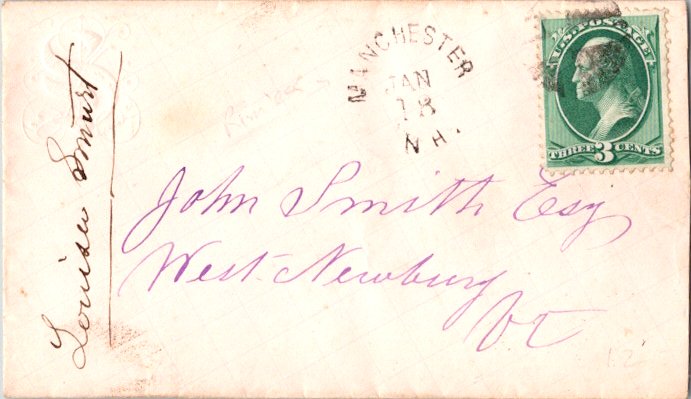 Louisa Smart
MANCHESTER
JAN
18
N.H.
U.S. POSTAGE
THREE 3 CENTS
John Smith Esq
West Newbury
Vt